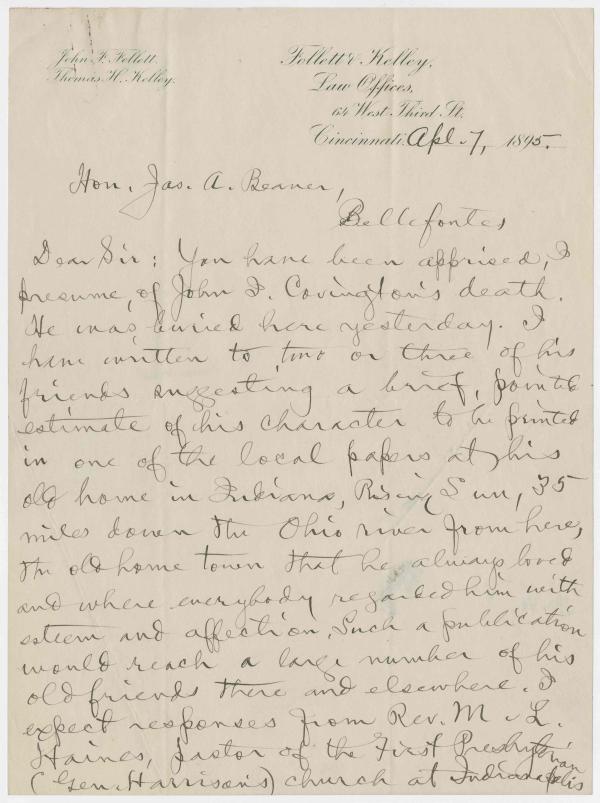 John F. Follett.
Thomas H. Kelley.
Follett & Kelley,
Law Offices,
64 West Third St.
Cincinnati, Apl. 7, 1895.
Hon. Jas. A. Beaver,
Bellefonte
Dear Sir: You have been apprised, I
presume, of John I. Covington's death.
He was buried here yesterday. I
have written to two or three of his
friends suggesting a brief, pointed
estimate of his character to be printed
in one of the local papers at his
old home in Indiana, Rising Sun, 35
miles down the Ohio river from here,
the old home town that he always loved
and where everybody regarded him with
esteem and affection. Such a publication
would reach a large number of his
old friends there and elsewhere. I
expect responses from Rev. M. L.
Haines, pastor of the First Presbyterian
(Gen. Harrison's) church at Indianapolis